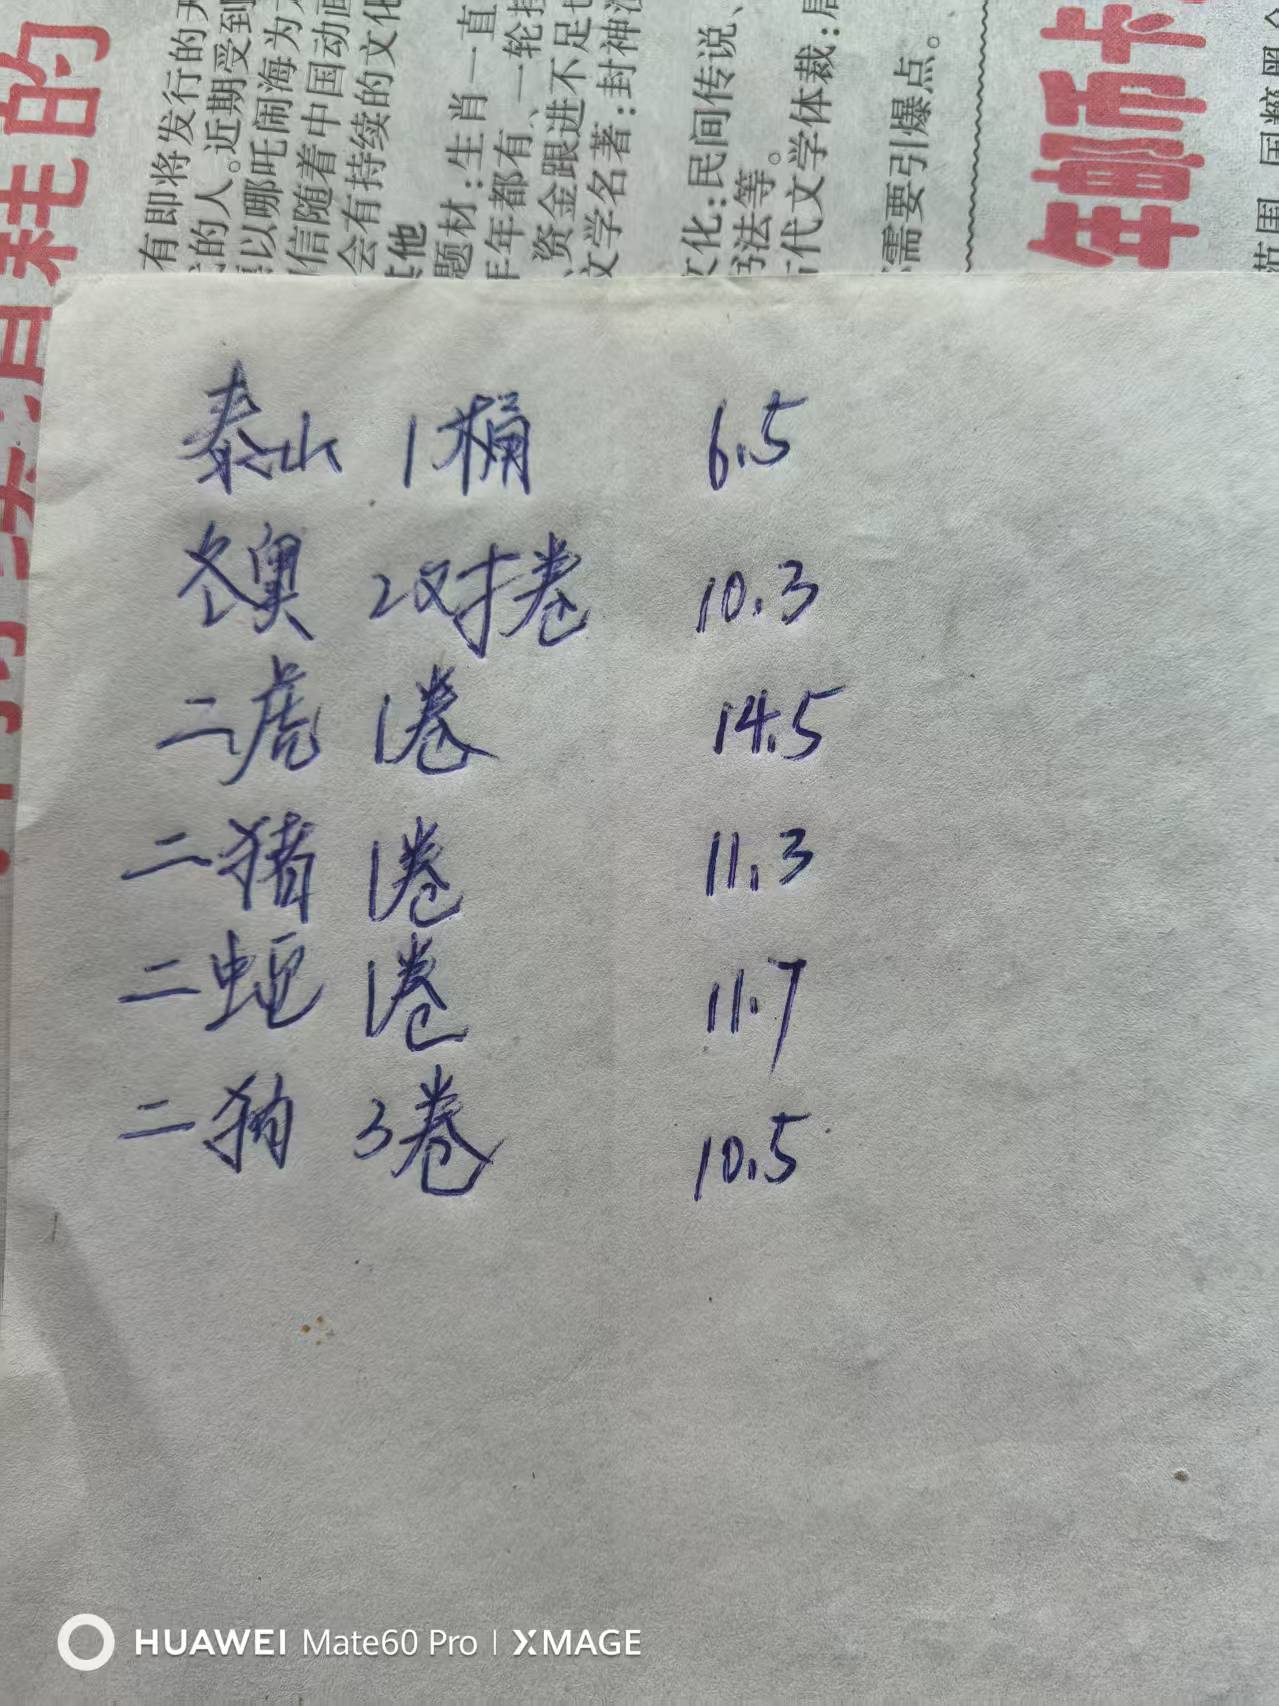 有即将发行的
的人。近期受到
以哪吒闹海为
信随着中国动画
会有持续的文化
其他
题材：生肖一直
年年都有、一轮接
、资金跟进不足
文学名著：封神
文化：民间传说、
书法等。
古代文学体裁：唐
需要引爆点。
年邮币卡
范围
泰山 1桶 6.5
冬奥 2对卷 10.3
二虎 1卷 14.5
二猪 1卷 11.3
二蛇 1卷 11.7
二狗 3卷 10.5
HUAWEI Mate60 Pro | XMAGE